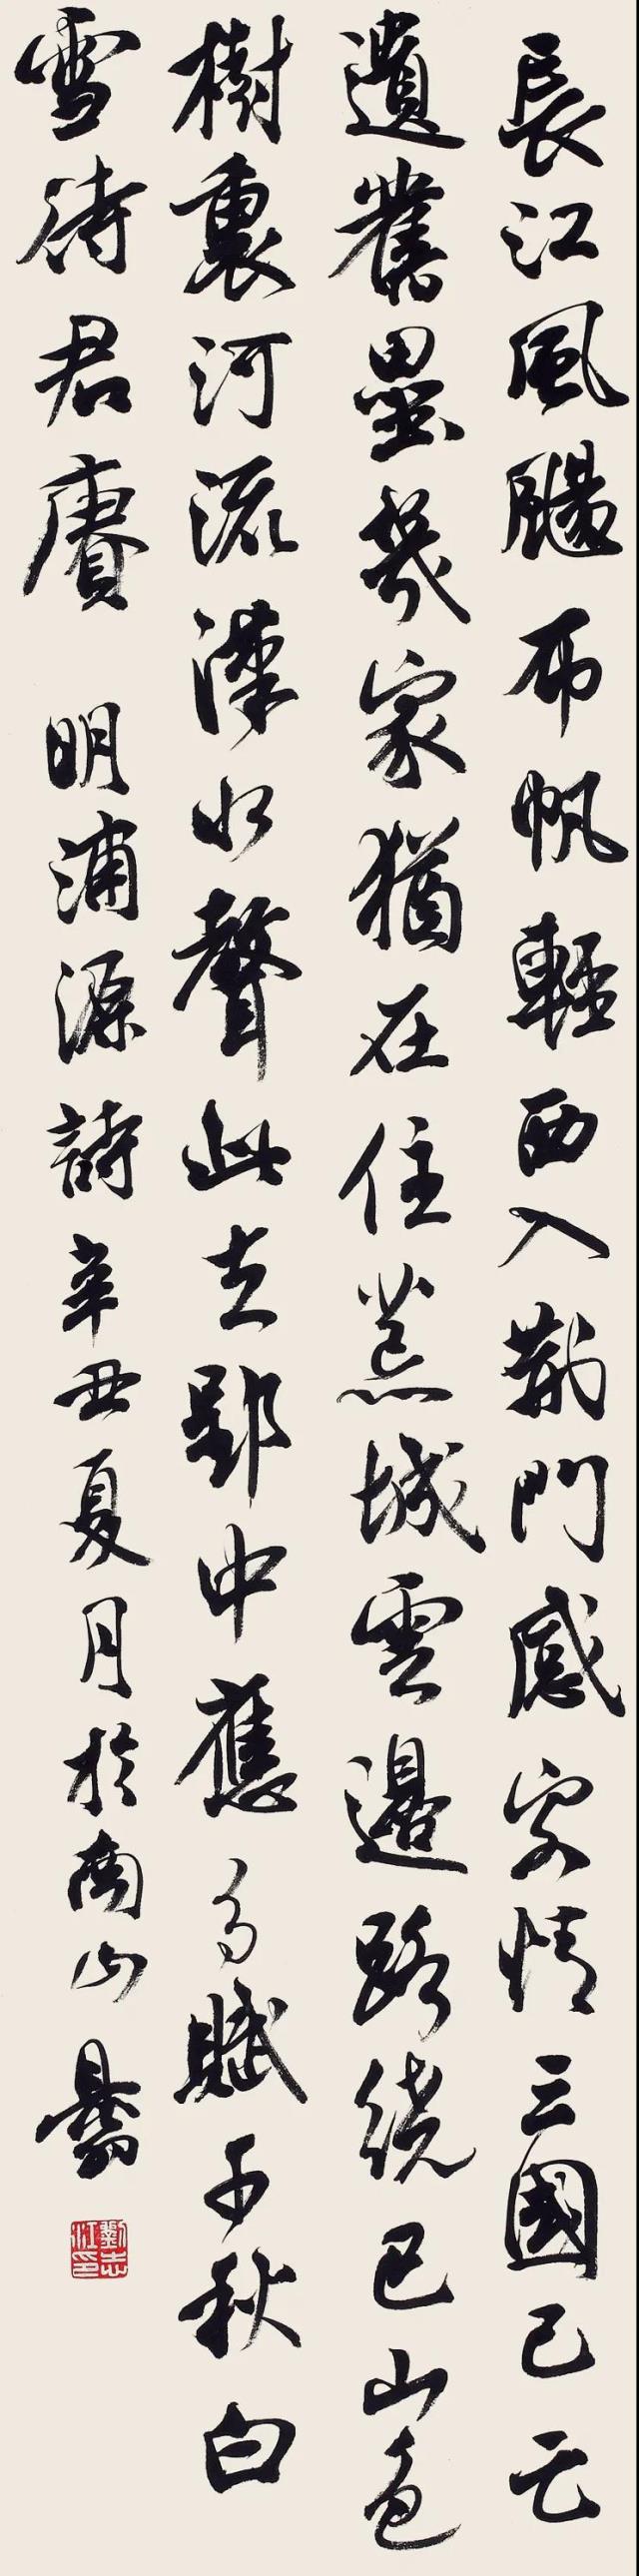 長江風颺布帆輕西入荊門感客情三國已亡
遺舊壘幾家猶在住荒城雲邊路繞巴山色
樹裏河流漢水聲此去郢中應有賦千秋白
雪待君賡 明浦源詩辛丑夏月於南山
劉志江印